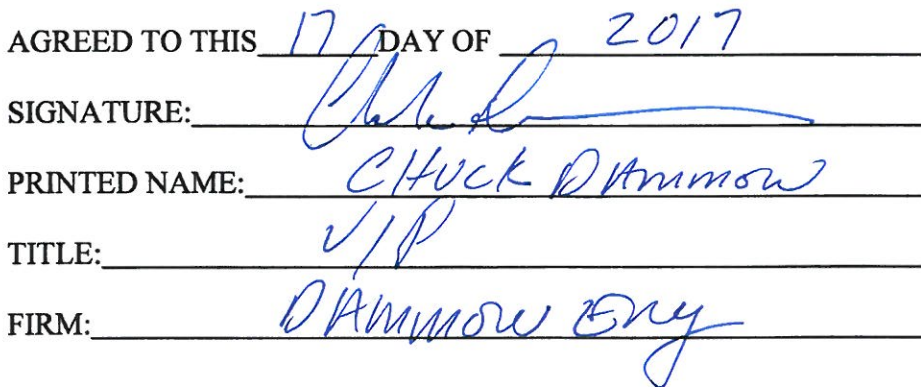 AGREED TO THIS 17 DAY OF 2017
SIGNATURE:
PRINTED NAME: CHUCK DAMMON
TITLE: V/P
FIRM: DAMMON Eng